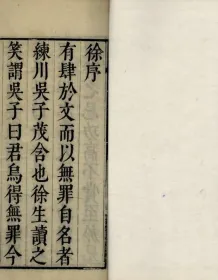 徐序
有肆於文而以無罪自名者
練川吳子茂含也徐生讀之
笑謂吳子曰君烏得無罪今